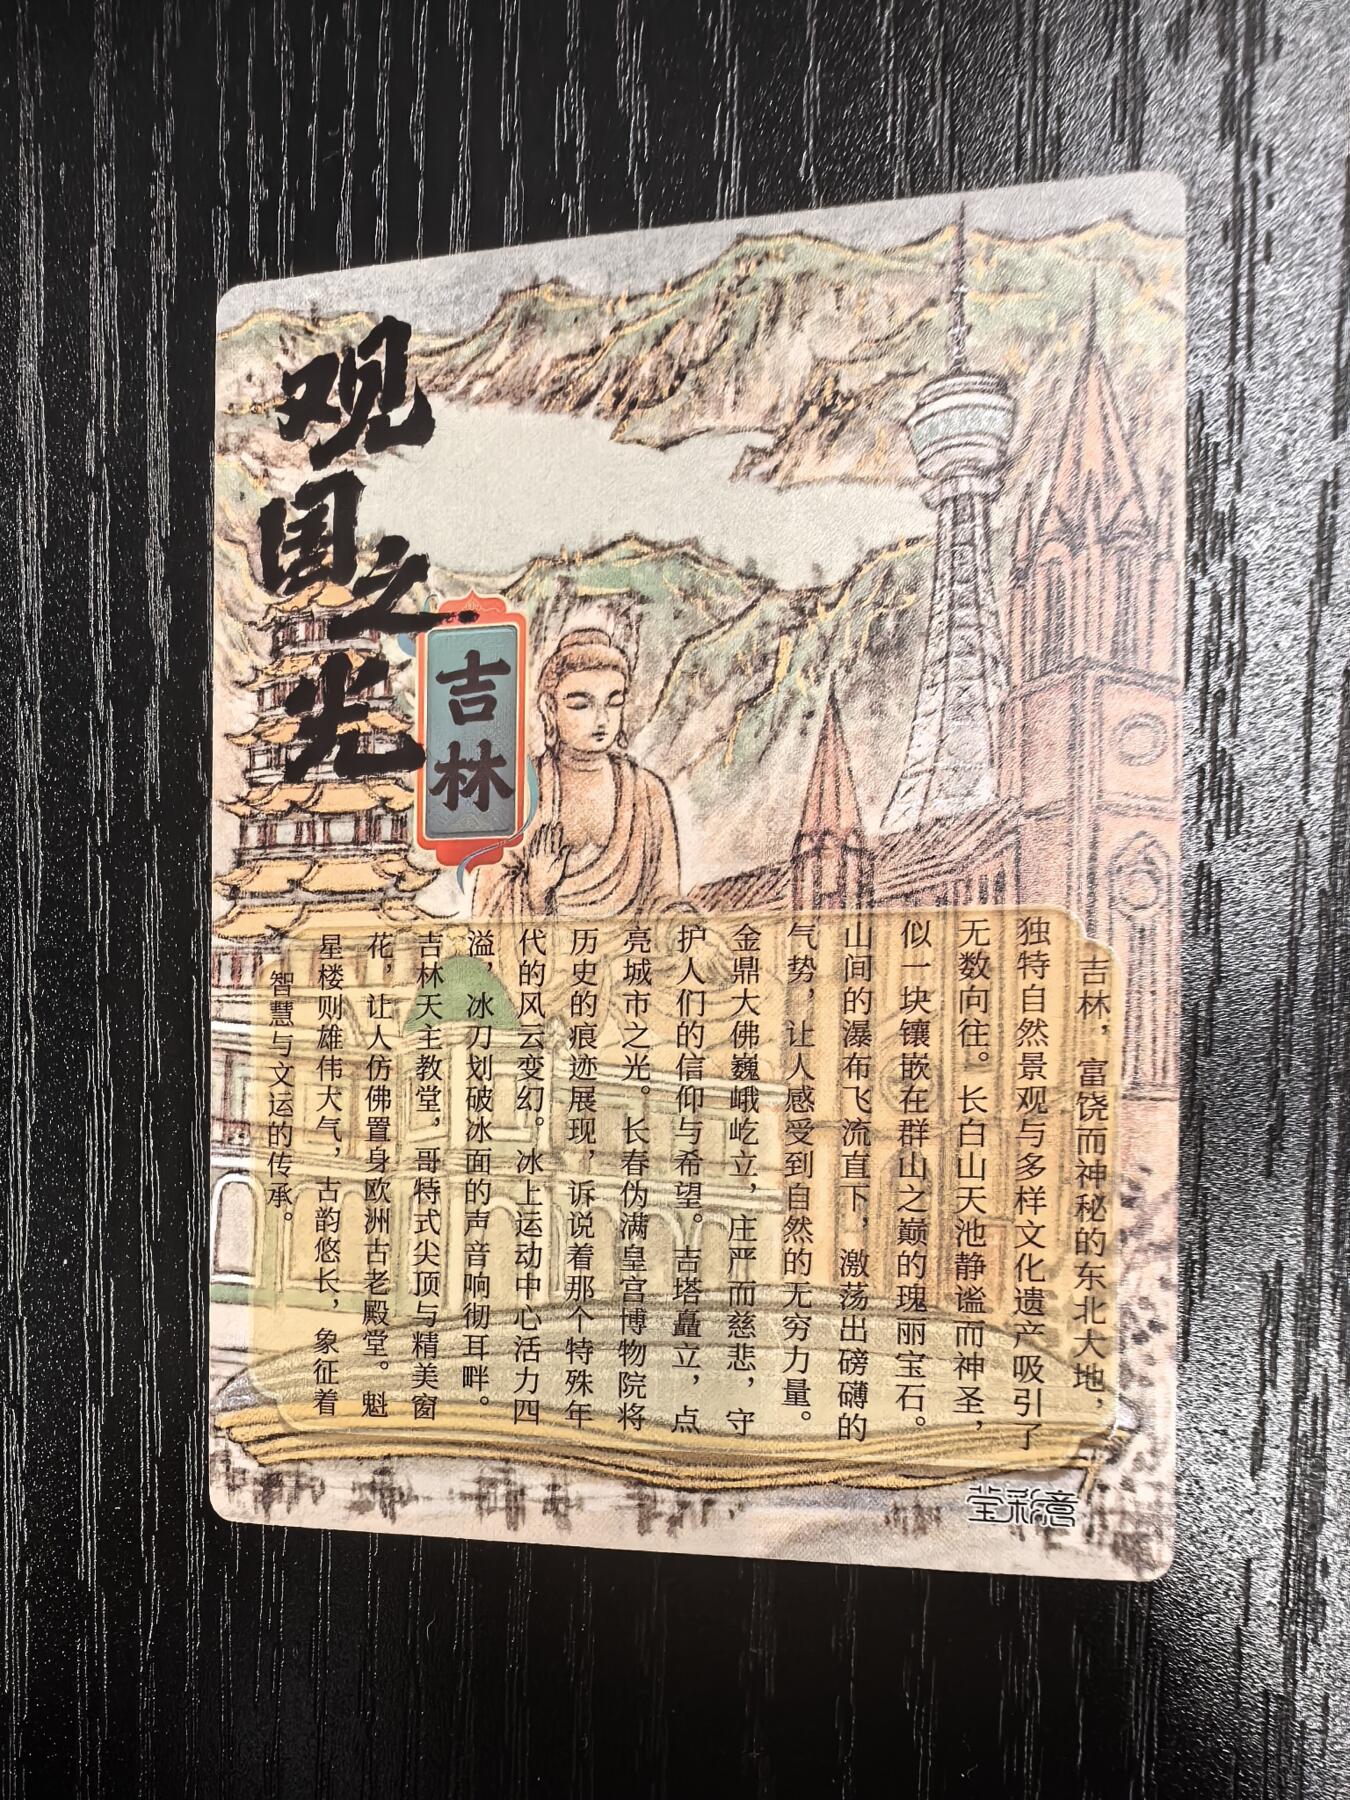 观国之光
吉林
吉林，富饶而神秘的东北大地，
独特自然景观与多样文化遗产吸引了
无数向往。长白山天池静谧而神圣，
似一块镶嵌在群山之巅的瑰丽宝石。
山间的瀑布飞流直下，激荡出磅礴的
气势，让人感受到自然的无穷力量。
金鼎大佛巍峨屹立，庄严而慈悲，守
护人们的信仰与希望。吉塔矗立，点
亮城市之光。长春伪满皇宫博物院将
历史的痕迹展现，诉说着那个特殊年
代的风云变幻。冰上运动中心活力四
溢，冰刀划破冰面的声音响彻耳畔。
吉林天主教堂，哥特式尖顶与精美窗
花，让人仿佛置身欧洲古老殿堂。魁
星楼则雄伟大气，古韵悠长，象征着
智慧与文运的传承。
莹彩意